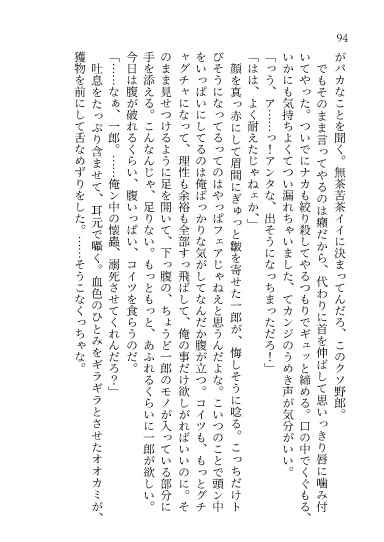 94
がバカなことを聞く。無茶苦茶イイに決まってんだろ、このクソ野郎。
でもそのまま言ってやるのは癪だから、代わりに首を伸ばして思いっきり唇に噛み付
いてやった。ついでにナカも絞り殺してやるつもりでギュッと締める。口の中でくぐもる、
いかにも気持ちよくてつい漏れちゃいました、てカンジのうめき声が気分がいい。
「っう、ア……っ！アンタな、出そうになっちまっただろ！」
「はは、よく耐えたじゃねェか、」
顔を真っ赤にして眉間にぎゅっと皺を寄せた一郎が、悔しそうに唸る。こっちだけト
びそうになってるってのはやっぱフェアじゃねえと思うんだよな。こいつのことで頭ン中
をいっぱいにしてるのは俺ばっかりな気がしてなんだか腹が立つ。コイツも、もっとグチ
ャグチャになって、理性も余裕も全部すっ飛ばして、俺の事だけ欲しがればいいのに。そ
のまま見せつけるように足を開いて、下っ腹の、ちょうど一郎のモノが入っている部分に
手を添える。こんなんじゃ、足りない。もっともっと、あふれるくらいに一郎が欲しい。
今日は腹が破れるくらい、腹いっぱい、コイツを食らうのだ。
「……なぁ、一郎。……俺ン中の懐蟲、溺死させてくれんだろ？」
吐息をたっぷり含ませて、耳元で囁く。血色のひとみをギラギラとさせたオオカミが、
獲物を前にして舌なめずりをした。……そうこなくっちゃな。